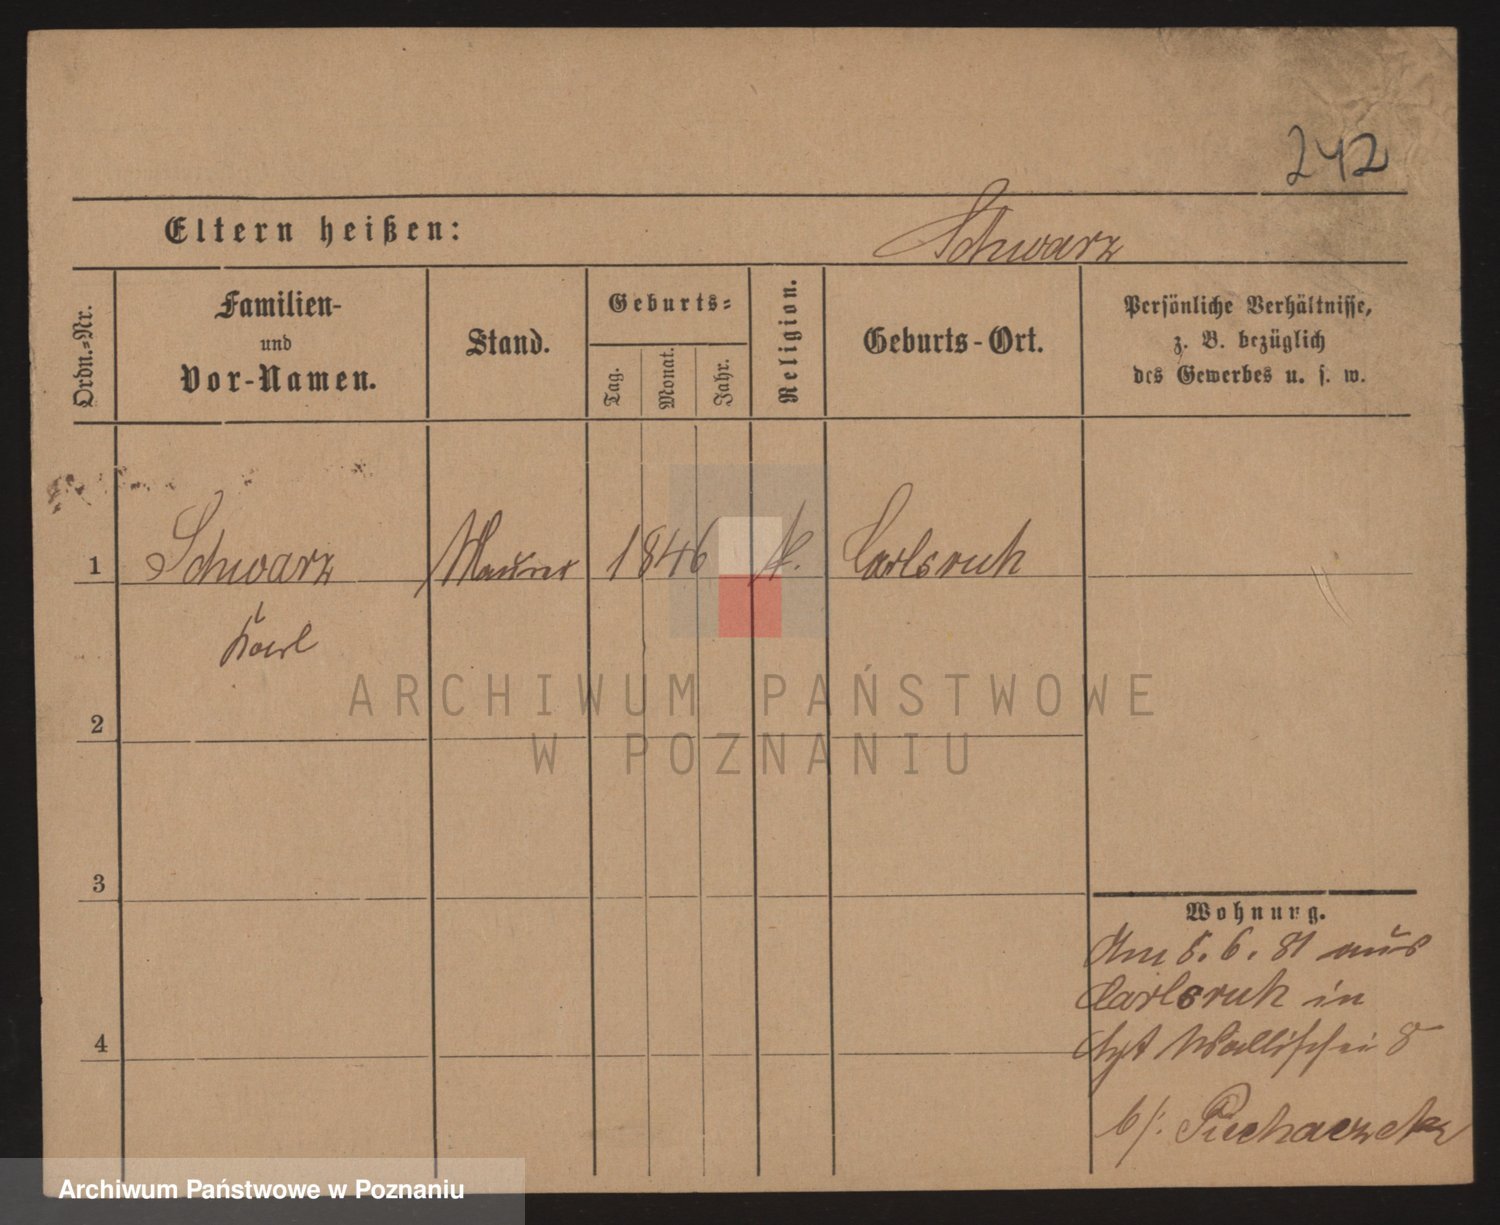 242
Eltern heißen:
Schwarz
Ordn.-Nr.
Familien-
und
Vor-Namen.
Stand.
Geburts-
Tag.
Monat.
Jahr.
Religion.
Geburts-Ort.
Persönliche Verhältnisse,
z. B. bezüglich
des Gewerbes u. s. w.
1 Schwarz Maurer 1846 k. Carlsruh
Karl
2
3
4
Wohnung.
Am 5. 6. 81 aus
Carlsruh in
Wallischei 8
b/:
ARCHIWUM PAŃSTWOWE
W POZNANIU
Archiwum Państwowe w Poznaniu